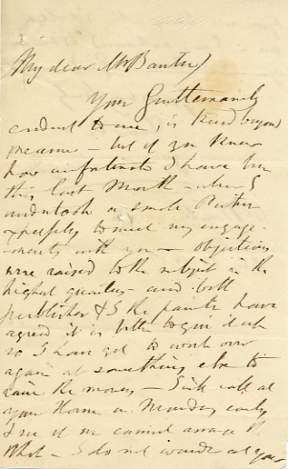 My dear Mr Banting
Your Gentlemanly
conduct to me, is kind beyond
measure – but if you knew
how unfortunate I have been
this last Month – when I
undertook a small Picture
expressly to meet my engage-
-ments with you – objections
were raised to the subject in the
highest quarters – and both
publisher & I the painter have
agreed it is better to give it up
so I have got to work over
again at something else to
raise the money – I will call at
your House on Monday early
& see if we cannot arrange
what – I do not wonder at your